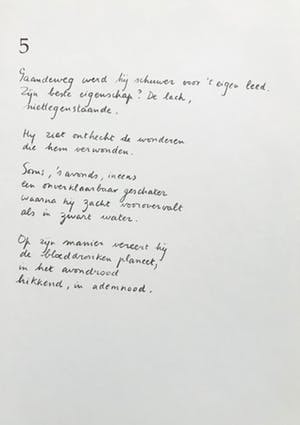 5
Gaandeweg werd hij schuwer voor 't eigen leed.
Zijn beste eigenschap? De lach,
niettegenstaande.
Hij ziet onthecht de wonderen
die hem verwonden.
Soms, 's avonds, ineens
een onverklaarbaar geschater
waarna hij zacht voorovervalt
als in zwart water.
Op zijn manier vereert hij
de bloeddronken planeet,
in het avondrood
hikkend, in ademnood.